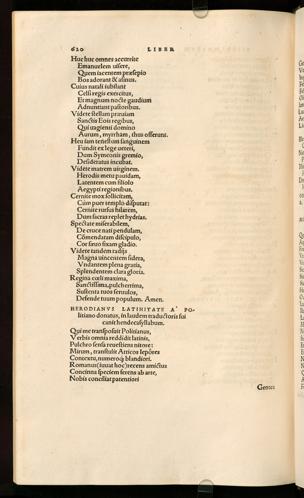 620 LIBER
Huc huc omnes accurrite
Emanuelem visere,
Quem iacentem præsepio
Bos adorant & asinus.
Cuius natali iubilant
Celsi regis exercitus,
Et magnum nocte gaudium
Adnuntiant pastoribus.
Videte stellam præuiam
Sanctis Eois regibus,
Qui vagienti domino
Aurum, myrrham, thus offerunt.
Heu iam tenellum sanguinem
Fundit ex lege veteri,
Dum Symeonis gremio,
Desideratus incubat.
Videte matrem virginem,
Herodis metu pauidam,
Latentem cum filiolo
Aegypti regionibus.
Cernite mox sollicitam,
Cùm puer templo disputat:
Cernite rursus hilarem,
Dum sacras replet hydrias.
Spectate miserabilem,
De cruce nati pendulam,
Cōmendatam discipulo,
Cor sauo fixam gladio.
Videte tandem radijs
Magna vincentem sidera,
Vndantem plena gratia,
Splendentem clara gloria.
Regina cœli maxima,
Sanctissima, pulcherrima,
Sustenta tuos seruulos,
Defende tuum populum. Amen.
HERODIANVS LATINITATE A' PO-
litiano donatus, in laudem traductoris sui
canit hendecasyllabum.
Qui me transposuit Politianus,
Verbis omnia reddidit latinis,
Pulchro sensa reuestiens nitore:
Mirum, transtulit Atticos lepôres
Contextu, numerosq; blandiori.
Romanus (iuuat hoc) recens amictus
Concinna speciem ferens ab arte,
Nobis conciliat